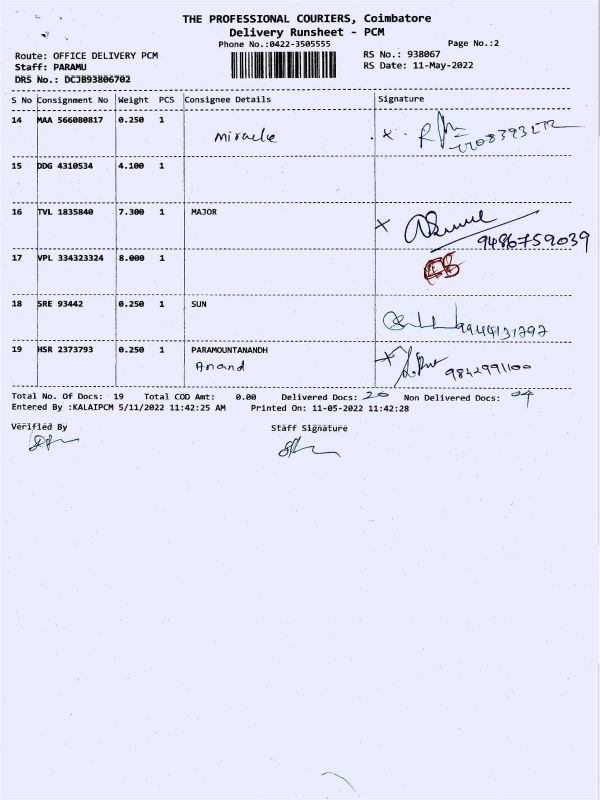 THE PROFESSIONAL COURIERS, Coimbatore
Delivery Runsheet - PCM
Phone No.:0422-3505555
Page No.:2
Route: OFFICE DELIVERY PCM
RS No.: 938067
Staff: PARAMU
RS Date: 11-May-2022
DRS No.: DCJB93806702
S No Consignment No Weight PCS Consignee Details Signature
14 MAA 566080817 0.250 1 Miracle
15 DDG 4310534 4.100 1
16 TVL 1835840 7.300 1 MAJOR
9486759039
17 VPL 334323324 8.000 1
18 SRE 93442 0.250 1 SUN
9944131797
19 HSR 2373793 0.250 1 PARAMOUNTANANDH
Anand 9842991100
Total No. Of Docs: 19 Total COD Amt: 0.00 Delivered Docs: 20 Non Delivered Docs: 04
Entered By :KALAIPCM 5/11/2022 11:42:25 AM Printed On: 11-05-2022 11:42:28
Verified By Staff Signature